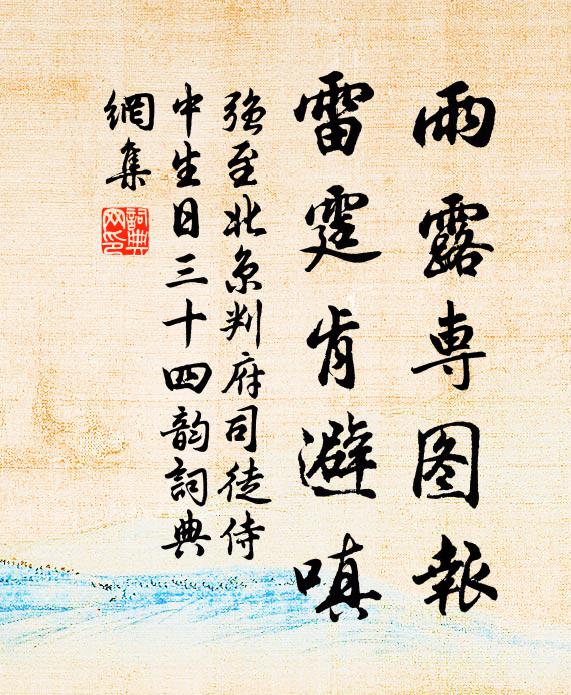 雨露専图報
雷霆肯避嗔
强至北京判府司徒侍
中生日三十四韵詞典
網集
詞典网印